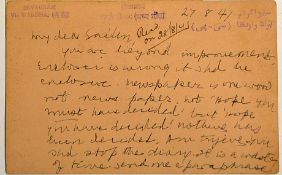 SEVAGRAM
27.8.41
My dear
you are beyond improvement.
Enclosure is wrong it shd be
enclosure. newspaper is one word
not news paper. not 'hope you
must have decided' but 'hope
you have decided'. nothing has
been decided.
shd stop the diary. it is a waste
of time. send me a paraphrase